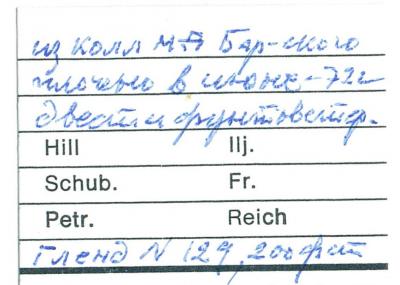 из колл МА Бар-ского
плочено в июне-72г
двести фунтовстер.
Hill Ilj.
Schub. Fr.
Petr. Reich
Гленд N 129, 200фст